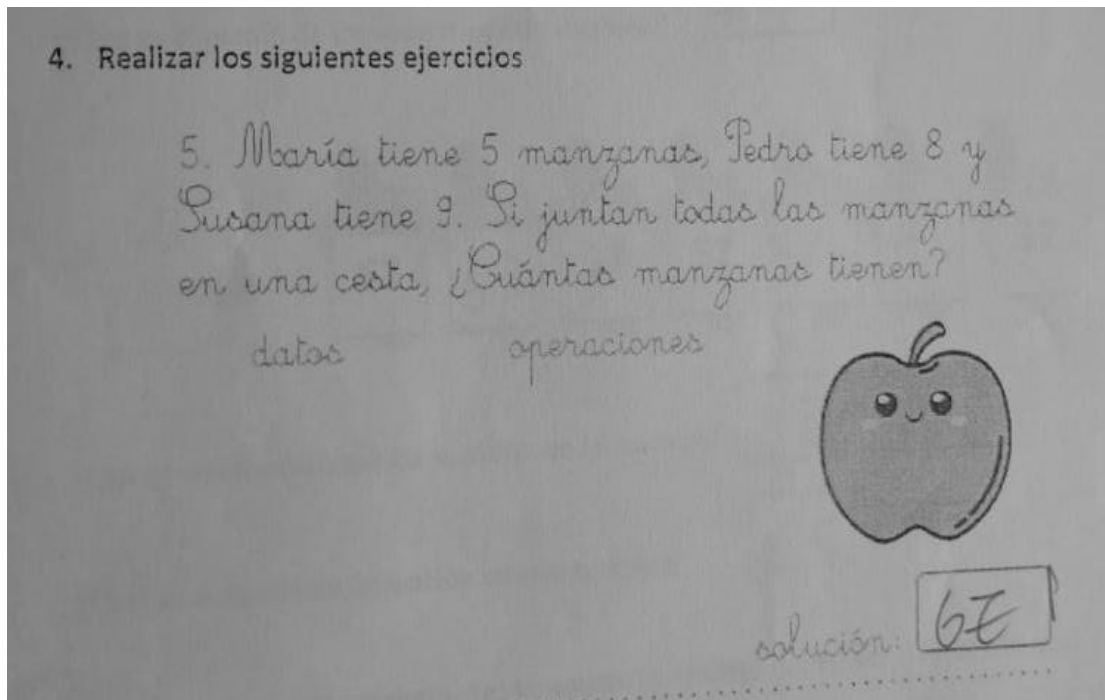 4. Realizar los siguientes ejercicios
5. María tiene 5 manzanas, Pedro tiene 8 y
Susana tiene 9. Si juntan todas las manzanas
en una cesta, ¿Cuántas manzanas tienen?
datos operaciones
solución: